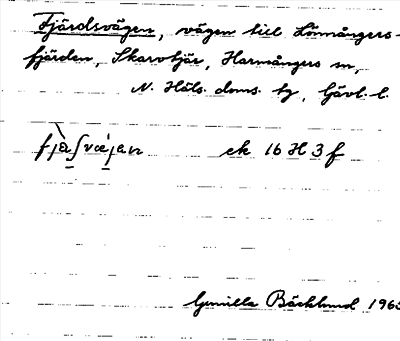 Fjärdsvägen, vägen till Lönnångers-
fjärden, Skarvtjär, Harmångers sn,
N. Häls. doms. tg, Gävl. l.
ek 16 H 3 f
Gunilla Bäcklund 196